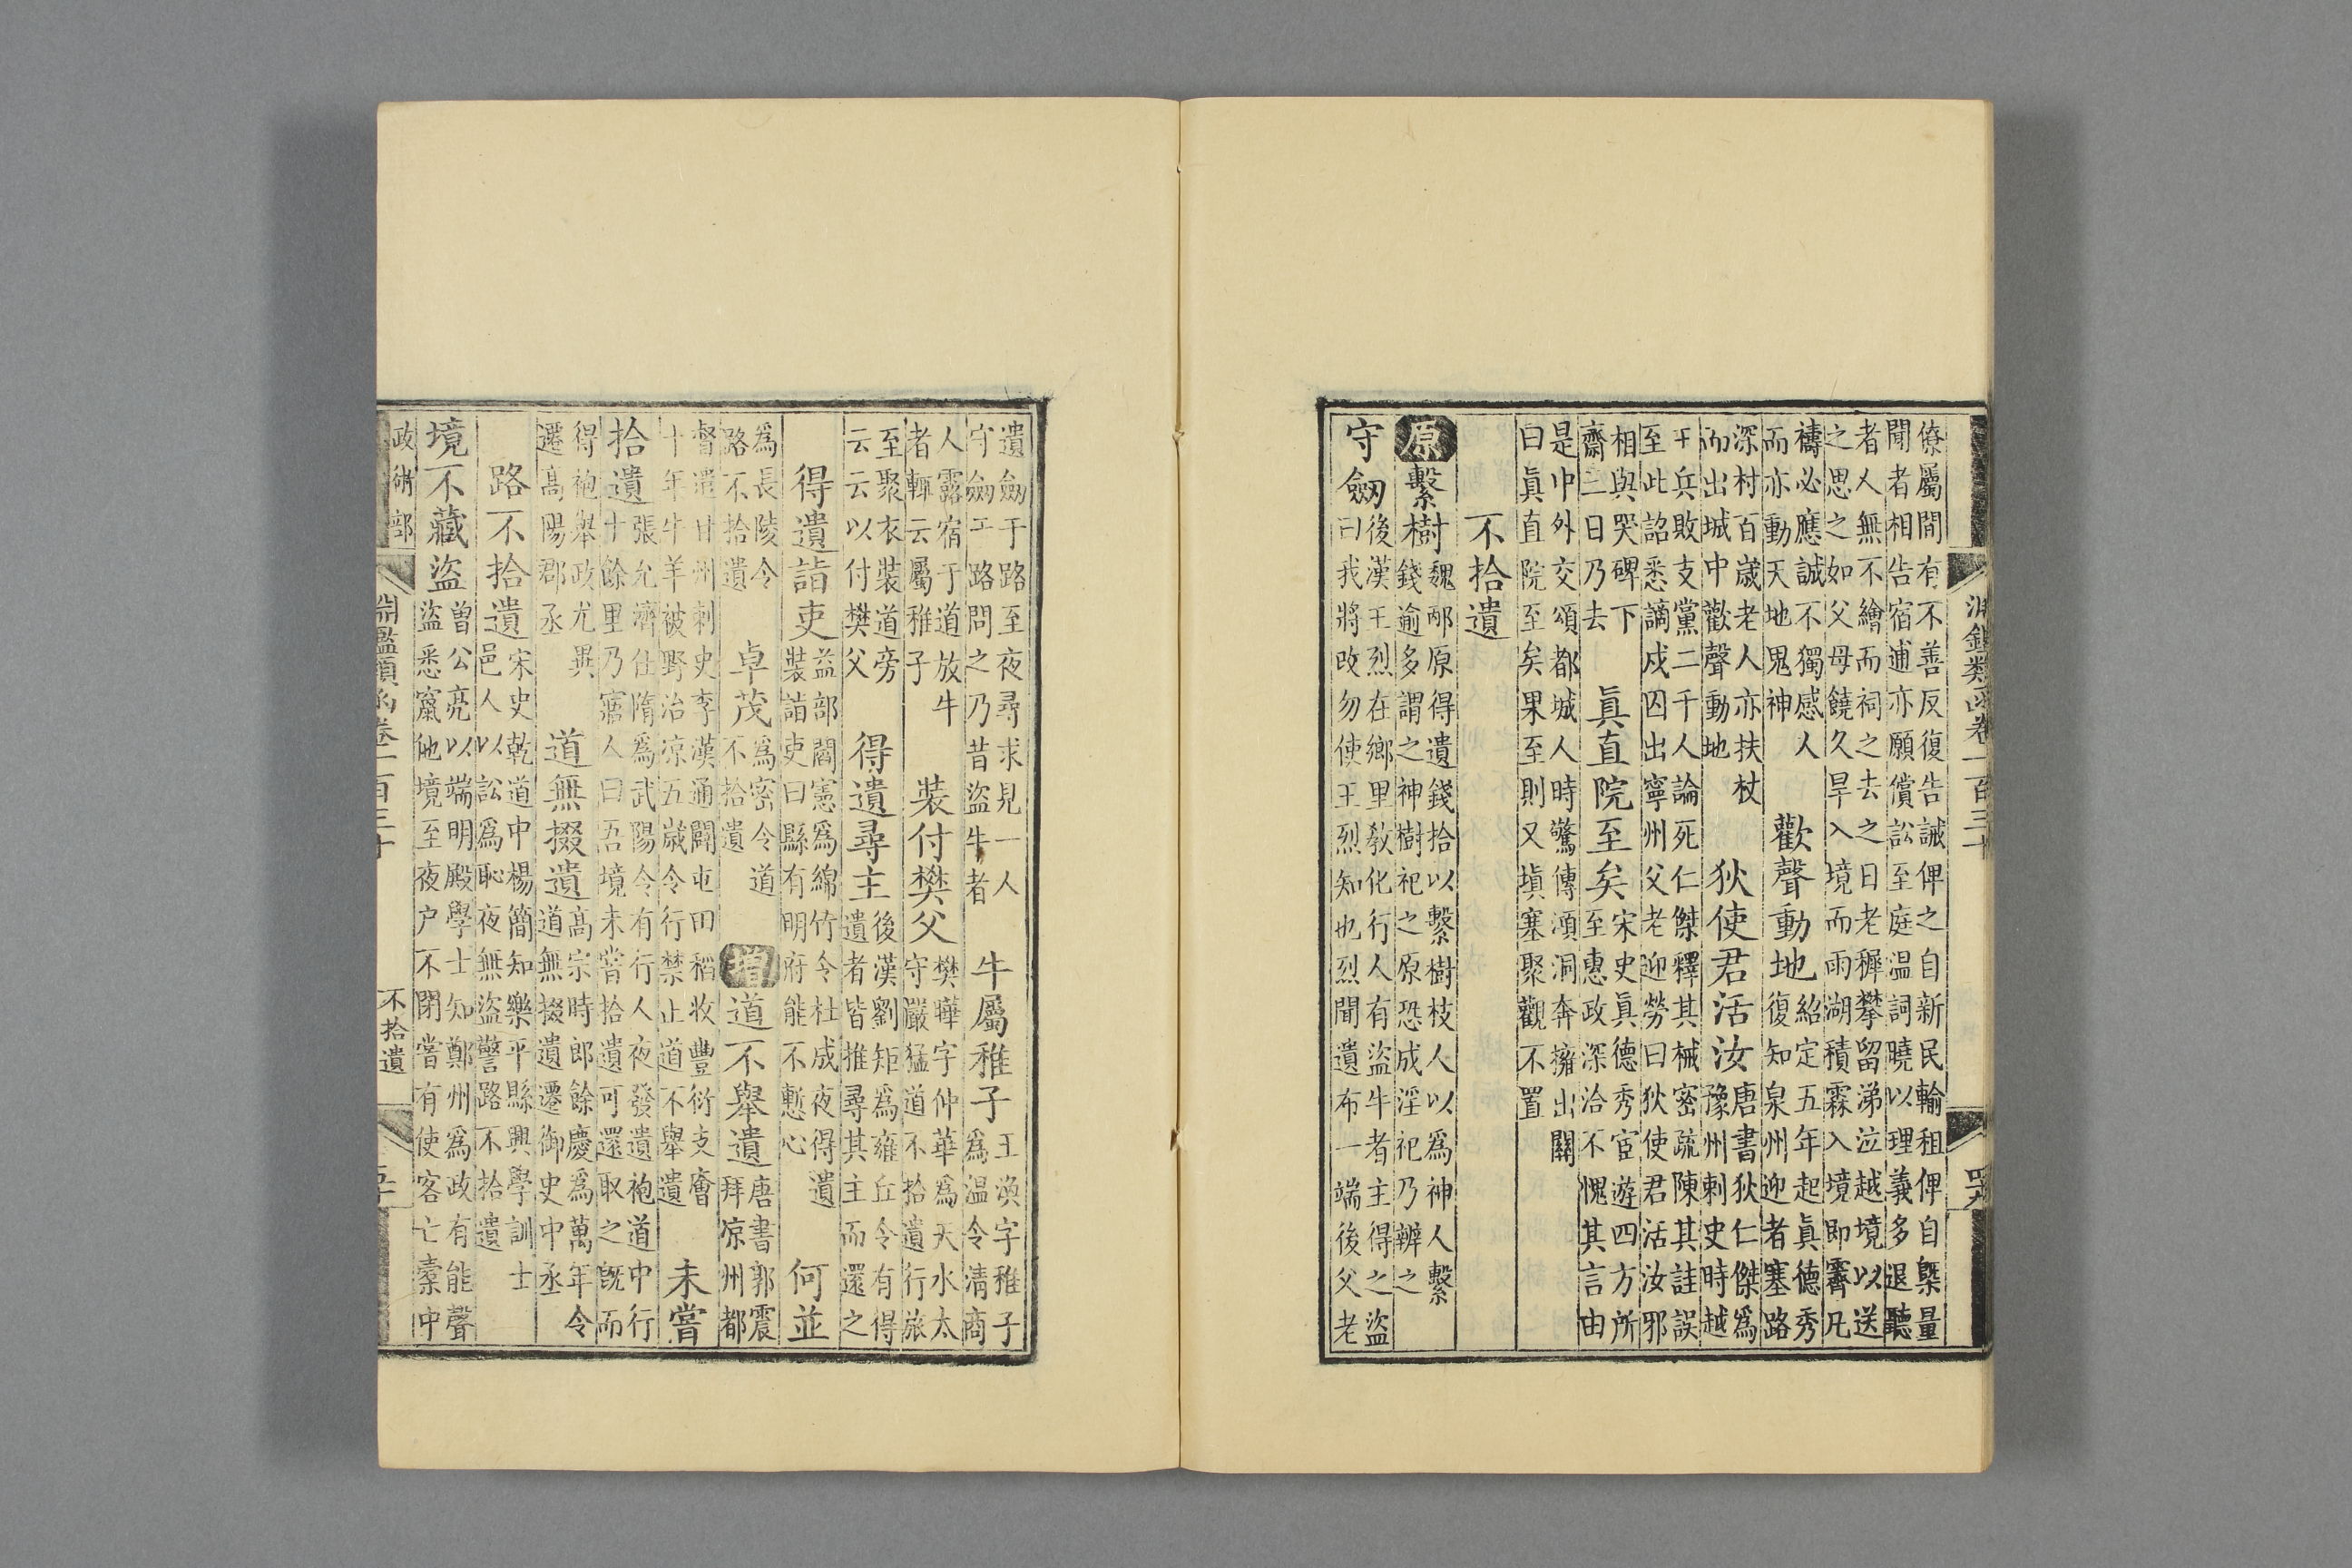 淵鑑類函卷一百三十
僚屬間有不善反復告誡俾之自新民輸租俾自槩量
聞者相告宿逋亦願償訟至庭温詞曉以理義多退聽
者人無不繪而祠之去之日老穉攀留涕泣越境以送
之思之如父母饒久旱入境而雨湖積霖入境即霽凡
禱必應誠不獨感人
而亦動天地鬼神
歡聲動地
紹定五年起眞德秀
復知泉州迎者塞路
深村百歲老人亦扶杖
而出城中歡聲動地
狄使君活汝
唐書狄仁傑爲
豫州刺史時越
王兵敗支黨二千人論死仁傑釋其械密疏陳其詿誤
至此詔悉謫戍囚出寧州父老迎勞曰狄使君活汝邪
相與哭碑下
齋三日乃去
眞直院至矣
宋史眞德秀宦遊四方所
至惠政深洽不愧其言由
是中外交頌都城人時驚傳澒洞奔擁出關
曰眞直院至矣果至則又塡塞聚觀不置
不拾遺
原
繫樹
魏邴原得遺錢拾以繫樹枝人以爲神人繫
錢逾多謂之神樹祀之原恐成淫祀乃辨之
守劔
後漢王烈在鄉里敎化行人有盜牛者主得之盜
曰我將改勿使王烈知也烈聞遺布一端後父老
遺劔于路至夜尋求見一人
守劔于路問之乃昔盜牛者
牛屬稚子
王渙字稚子
爲温令清商
人露宿于道放牛
者輒云屬稚子
裝付樊父
樊曄字仲華爲天水太
守嚴猛道不拾遺行旅
至聚衣裝道旁
云云以付樊父
得遺尋主
後漢劉矩爲雍丘令有得
遺者皆推尋其主而還之
得遺詣吏
益部閻憲爲綿竹令杜成夜得遺
裝詣吏曰縣有明府能不慙心
何並
爲長陵令
路不拾遺
卓茂
爲密令道
不拾遺
增
道不舉遺
唐書郭震
拜凉州都
督遣甘州刺史李漢通闢屯田稻收豐衍支廥
十年牛羊被野治凉五歲令行禁止道不舉遺
未嘗
拾遺
張允濟仕隋爲武陽令有行人夜發遺袍道中行
十餘里乃寤人曰吾境未嘗拾遺可還取之旣而
得袍舉政尤異
遷高陽郡丞
道無掇遺
高宗時郎餘慶爲萬年令
道無掇遺遷御史中丞
路不拾遺
宋史乾道中楊簡知樂平縣興學訓士
邑人以訟爲恥夜無盜警路不拾遺
境不藏盜
曾公亮以端明殿學士知鄭州爲政有能聲
盜悉竄他境至夜户不閉嘗有使客亡橐中
政術部
淵鑑類函卷一百三十
不拾遺